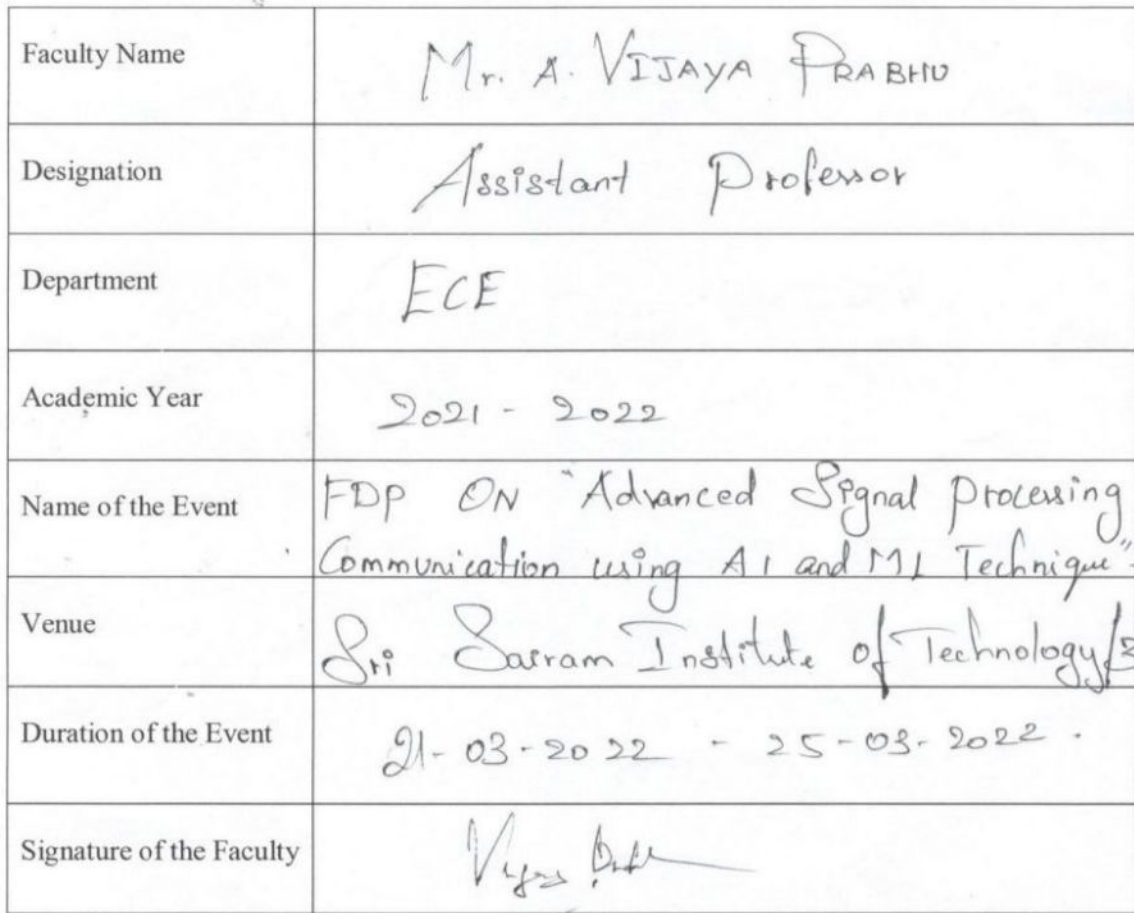 Faculty Name
Mr. A. VIJAYA PRABHU
Designation
Assistant Professor
Department
ECE
Academic Year
2021 - 2022
Name of the Event
FDP ON "Advanced Signal Processing
Communication using AI and ML Technique".
Venue
Sri Sairam Institute of Technology/
Duration of the Event
21-03-2022 - 25-03-2022.
Signature of the Faculty